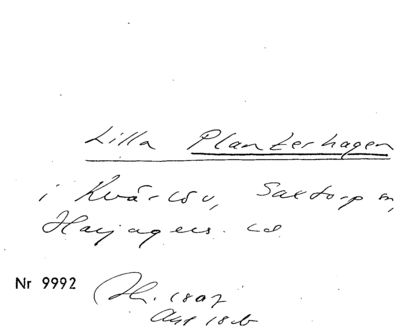 Lilla Planterhagen
i Kvärlöv, Saxtorp sn,
Harjagers hd
Nr 9992
1807
Akt 18b